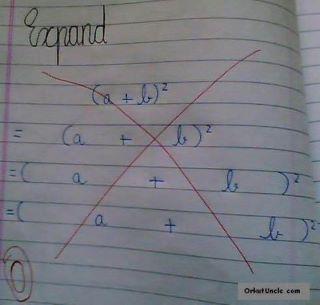 Expand
(a + b)²
= (a + b)²
=( a + b )²
=( a + b )²
0
OrkutUncle.com